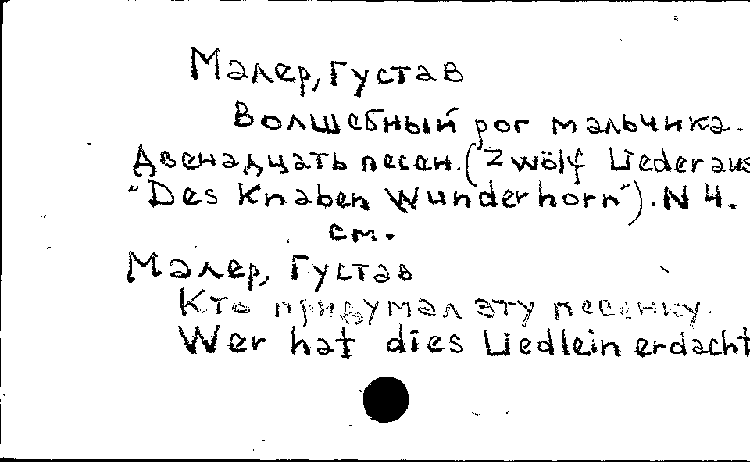 Малер, Густав
Волшебный рог мальчика.
Двенадцать песен. ("Zwölf Lieder aus
"Des Knaben Wunderhorn"). N 4.
см.
Малер, Густав
Кто придумал эту песенку.
Wer hat dies Liedlein erdacht